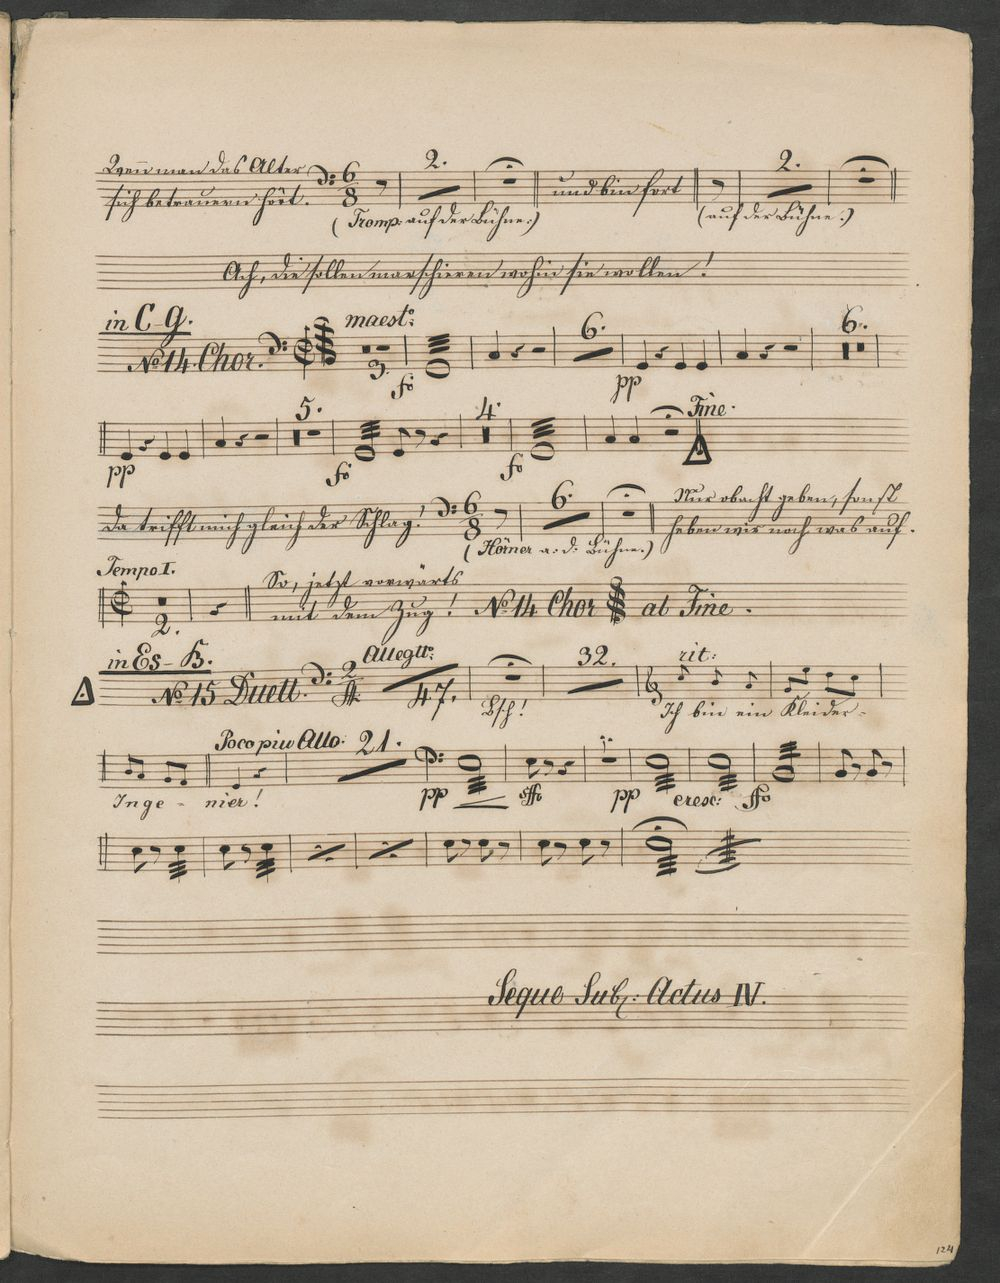 Wenn man das Alter
sich betrauern hört. 6/8 2. und bin fort 2.
(Tromp: auf der Bühne:) (auf der Bühne.)
Ach, die sollen marschieren wohin sie wollen!
in C-G. maest:
No 14. Chor. 3. fo 6. pp 6.
pp 5. fo 4. fo Fine.
Da trifft mich gleich der Schlag! 6/8 6. Nur obacht geben, sonst
(Hörner a: d: Bühne.) heben wir noch was auf.
Tempo I. So, jetzt vorwärts
2. mit dem Zug! No 14 Chor al Fine.
in Es-B. Allegtto: 32. rit:
No 15 Duett. 2/4 47. Bsch! Ich bin ein Kleider-
Poco piu Allo: 21.
Inge-nier! pp sffo pp cresc: ffo
Seque Sub: Actus IV.
124